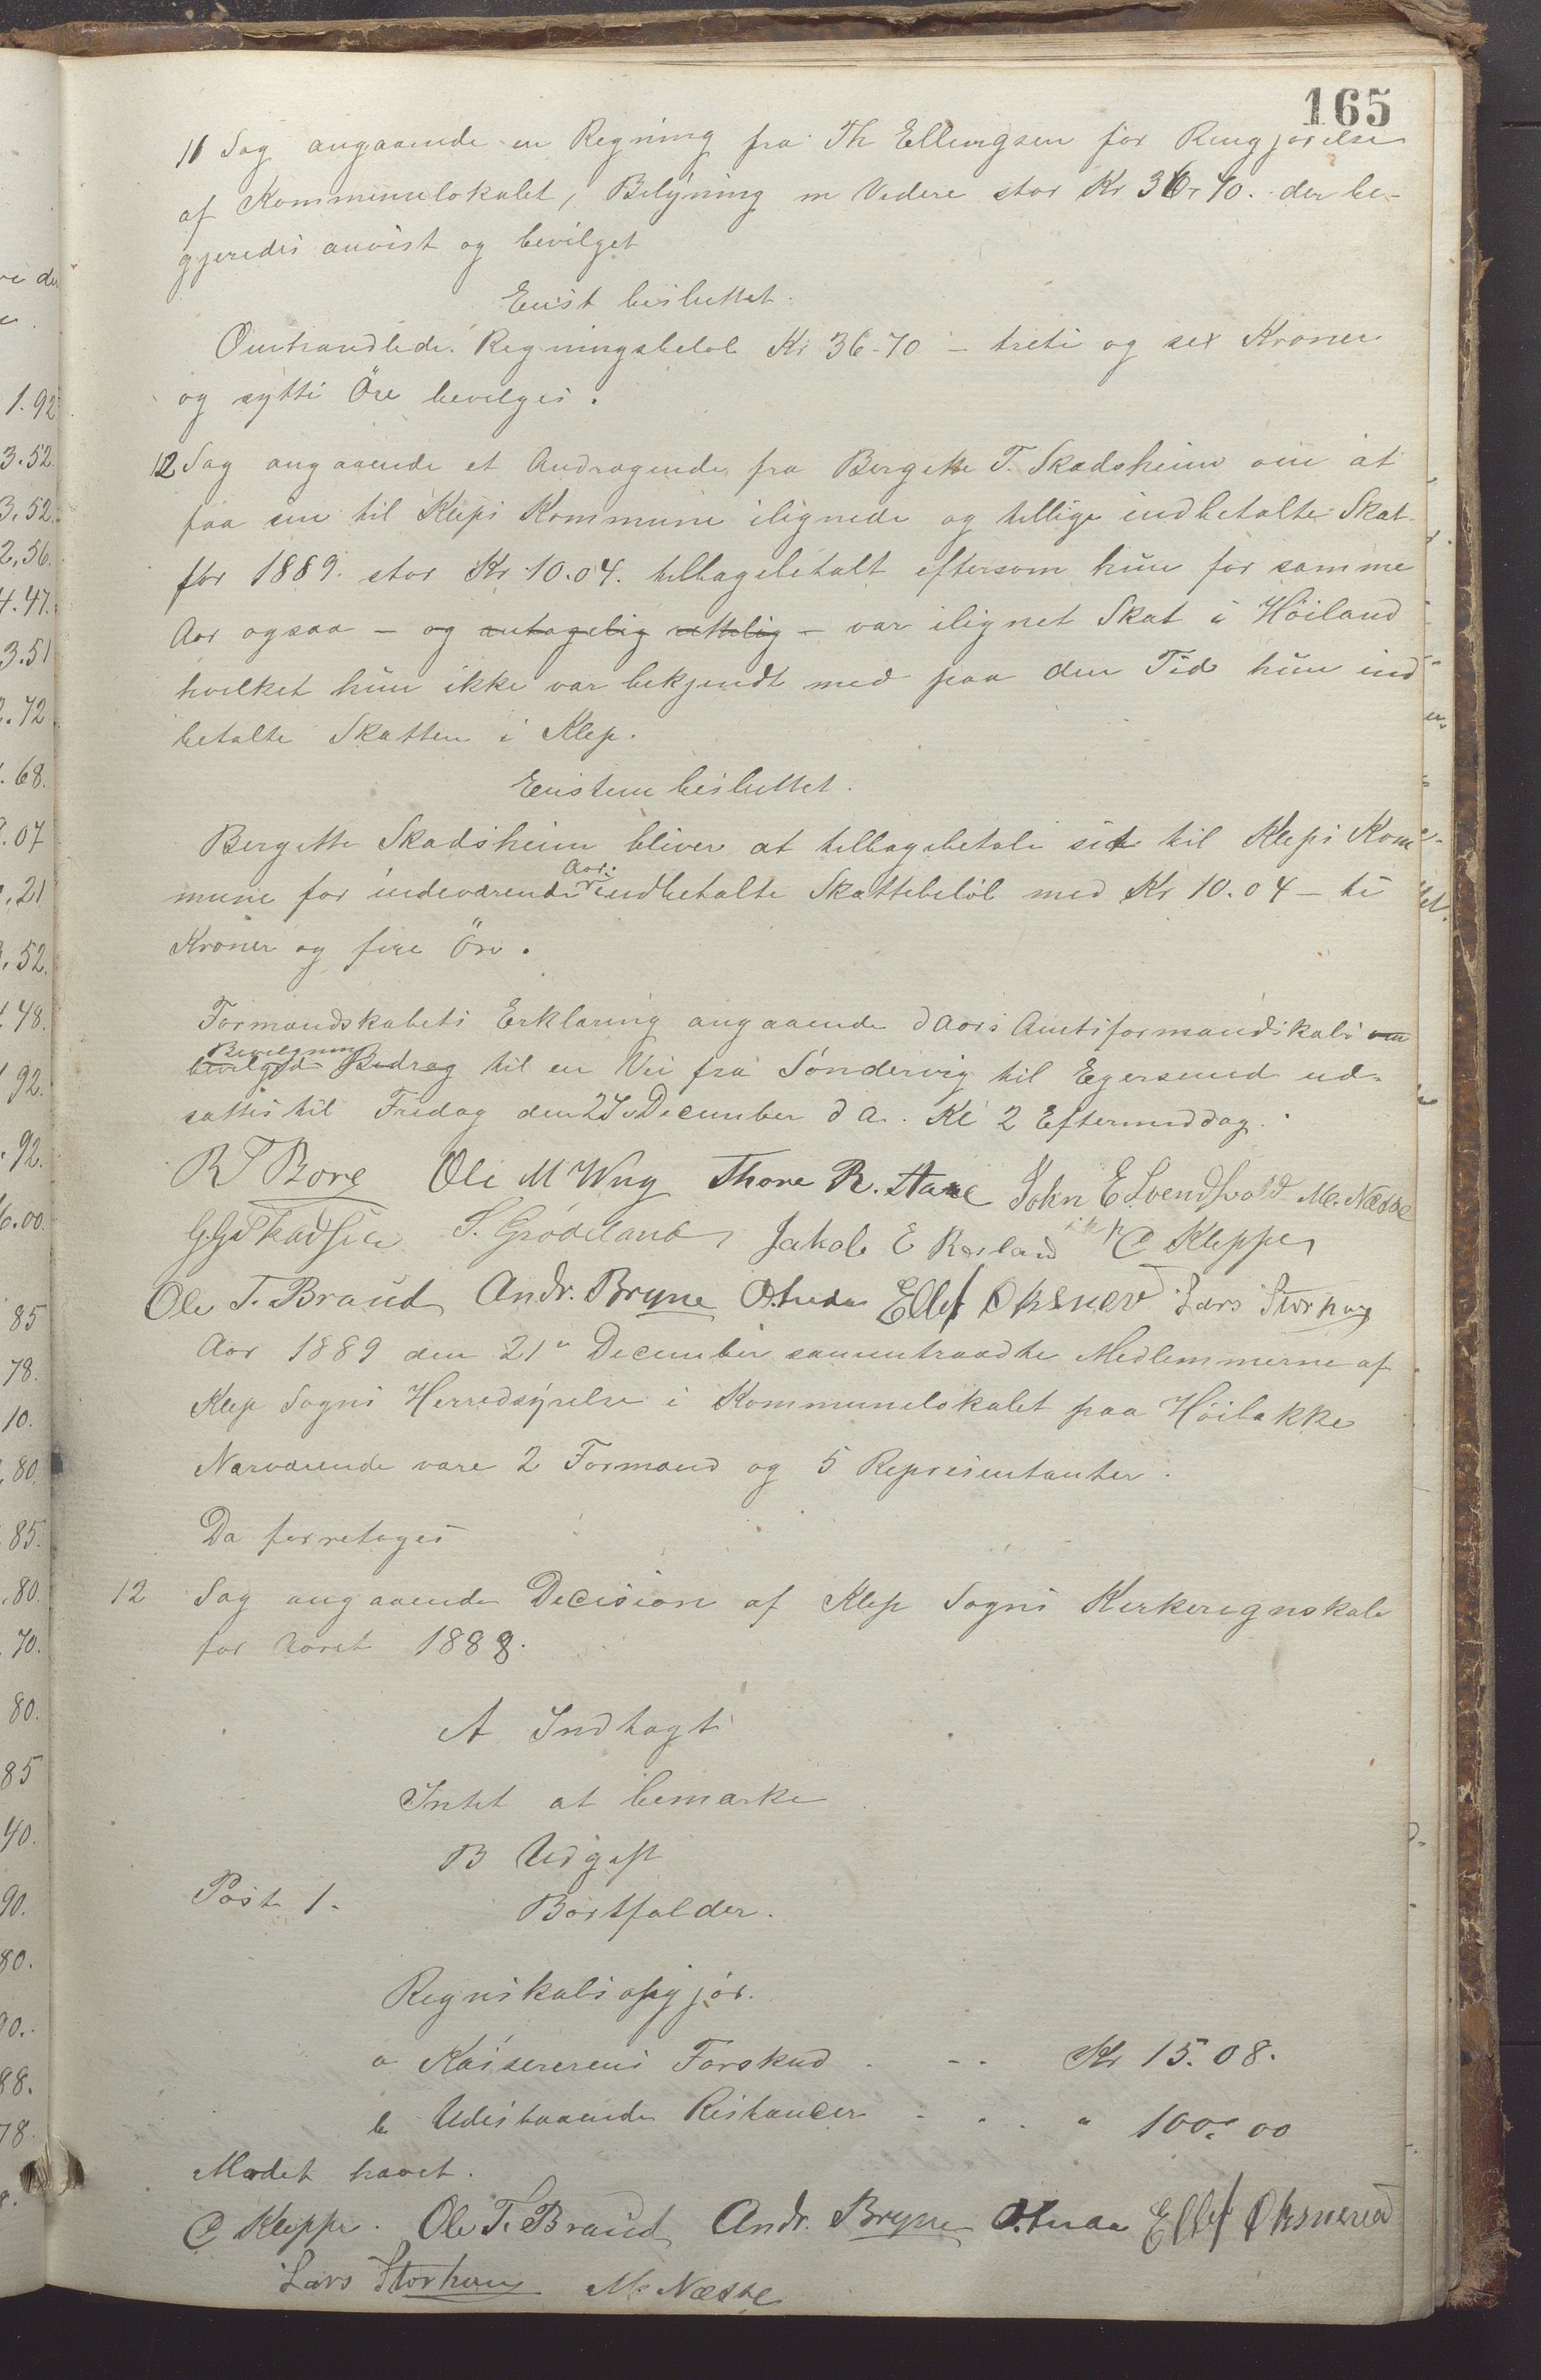 165
11 Sag angaaende en Regning fra Th Ellingsen for Rengjørelse
af Kommunelokalet, Belysning m Videre stor Kr 36,70. der be-
gjeredes anvist og bevilget
Enst besluttet.
Omhandlede Regningsbeløb Kr 36-70 – treti og sex Kroner
og sytti Øre bevilges.
12 Sag angaaende et Andragende fra Bergette T. Skadsheim om at
faa sin til Kleps Kommune ilignede og tillige indbetalte Skat
for 1889. stor Kr. 10.04. tilbagebetalt eftersom hun for samme
Aar ogsaa – og antagelig rettelig – var ilignet Skat i Høiland
hvilket hun ikke var bekjendt med paa den Tid hun ind
betalte Skatten i Klep.
Enstem besluttet.
Bergette Skadsheim bliver at tilbagebetale sit til Kleps Kom
mune for indeværende Aar indbetalte Skattebeløb med Kr 10.04 – ti
Kroner og fire Øre.
Formandskabets Erklæring angaaende d Aars Amtsformandskabs om
Bevilgning
bevilged Bidrag til en Vei fra Søndervig til Egersund ud-
sattes til Fredag den 27 December d A. Kl 2 Eftermiddag.
R T Bore Ole M Wiig Thore R. Haae John E. Svendsvold M. Næsse
G. G. Skadsem S. Grødeland Jakob E Rorland C Kleppe
Ole T. Braud Andr. Bryne O. Ellef Øksnevad Lars Storhaug
Aar 1889 den 21 December sammentraadte Medlemmerne af
Klep Sogns Herredsyrelse i Kommunelokalet paa Høilakke
Nærværende vare 2 Formænd og 5 Representanter.
Da forretoges
12 Sag angaaende Decision af Klep Sogns Kirkeregnskab
for Aaret 1888.
A Indtægt
Intet at bemærke
B Udgift
Post 1. Bortfalder.
Regnskabsopgjør.
a Kassererens Forskud . - - Kr 15.08.
b Udestaaende Restancer . . . " 100,00
Mødet hævet.
C Kleppe. Ole T. Braud Andr. Bryne O. Ellef Øksnevad
Lars Storhaug M. Næsse